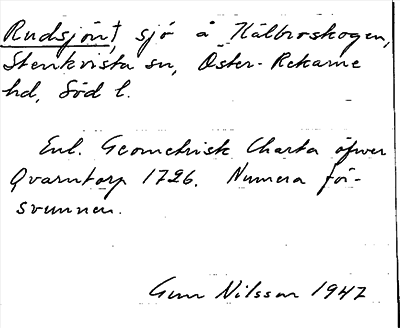 Rudsjön†, sjö å Kälbroskogen,
Stenkvista sn, Öster-Rekarne
hd, Söd l.
Enl. Geometrisk Charta öfwer
Qvarntorp 1726. Numera för-
svunnen.
Gun Nilsson 1947